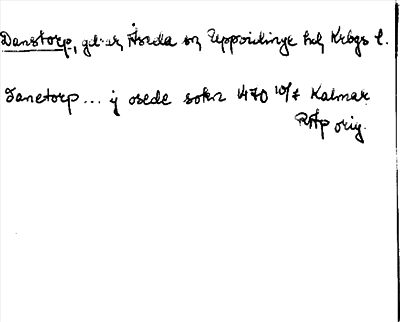 Danstorp, gd Åseda sn Uppvidinge hd Krbgs l.
Danetorp... ij osede sokn 1470 10/7 Kalmar
RAp orig.